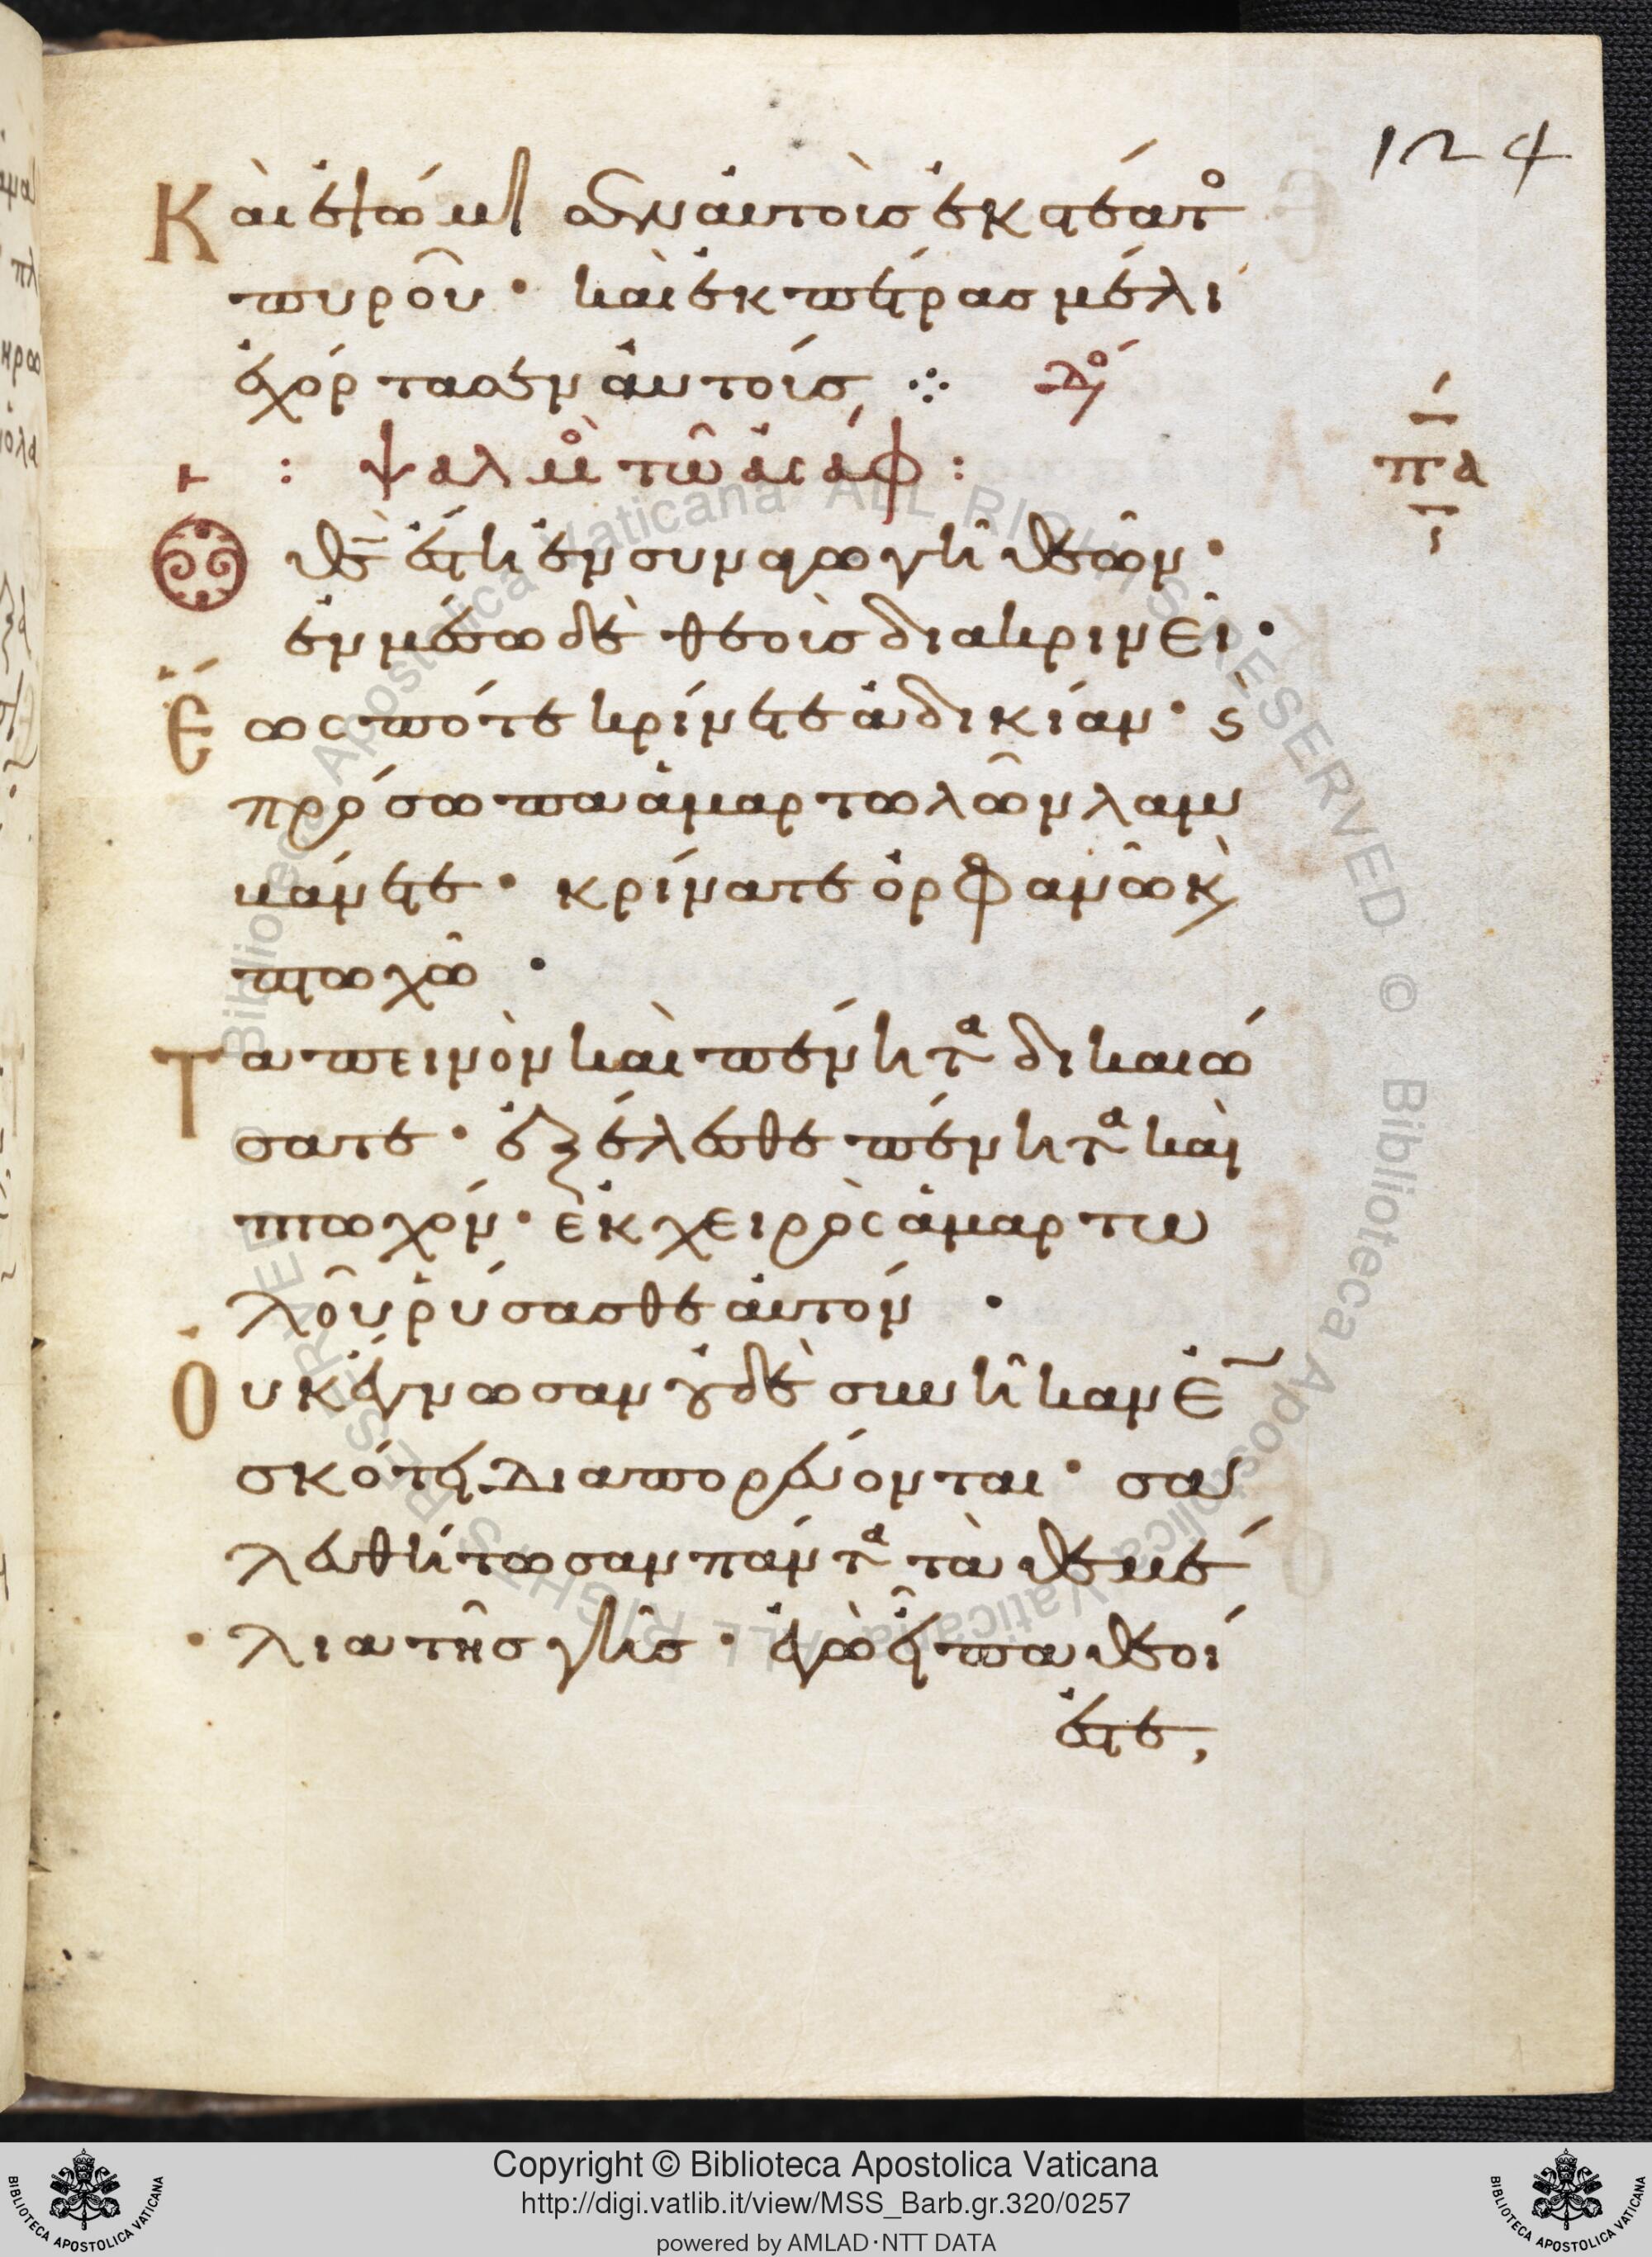 124
Καὶ ἐψώμισεν αὐτοὺς ἐκ στέατο
πυροῦ · καὶ ἐκ πέτρας μέλι
ἐχόρτασεν αὐτούς
ψαλμὸ τῶ ἀσάφ :
πα
Θς ἔστη ἐν συναγωγῆ θεῶν ·
ἐν μέσω δὲ θεοὺς διακρινεῖ ·
Ἕως πότε κρίνετε ἀδικίαν · ϛ
πρόσωπα ἁμαρτωλῶν λαμ
βάνετε · κρίνατε ὀρφανῶ κὶ
πτωχῶ ·
Ταπεινὸν καὶ πένητα δικαιώ
σατε · ἐξέλεσθε πένητα καὶ
πτωχόν · ἐκ χειρὸς ἁμαρτω
λοῦ ῥύσασθε αὐτόν ·
Οὐκ ἔγνωσαν οὐδὲ συνῆκαν ἐ
σκότει διαπορεύονται · σαλευ
θήτωσαν πάντα τὰ θεμέ
λια τῆς γῆς · ἐγὼ εἶπα θεοί
ἐστε,
Copyright © Biblioteca Apostolica Vaticana
http://digi.vatlib.it/view/MSS_Barb.gr.320/0257
powered by AMLAD·NTT DATA
BIBLIOTECA APOSTOLICA VATICANA
BIBLIOTECA APOSTOLICA VATICANA